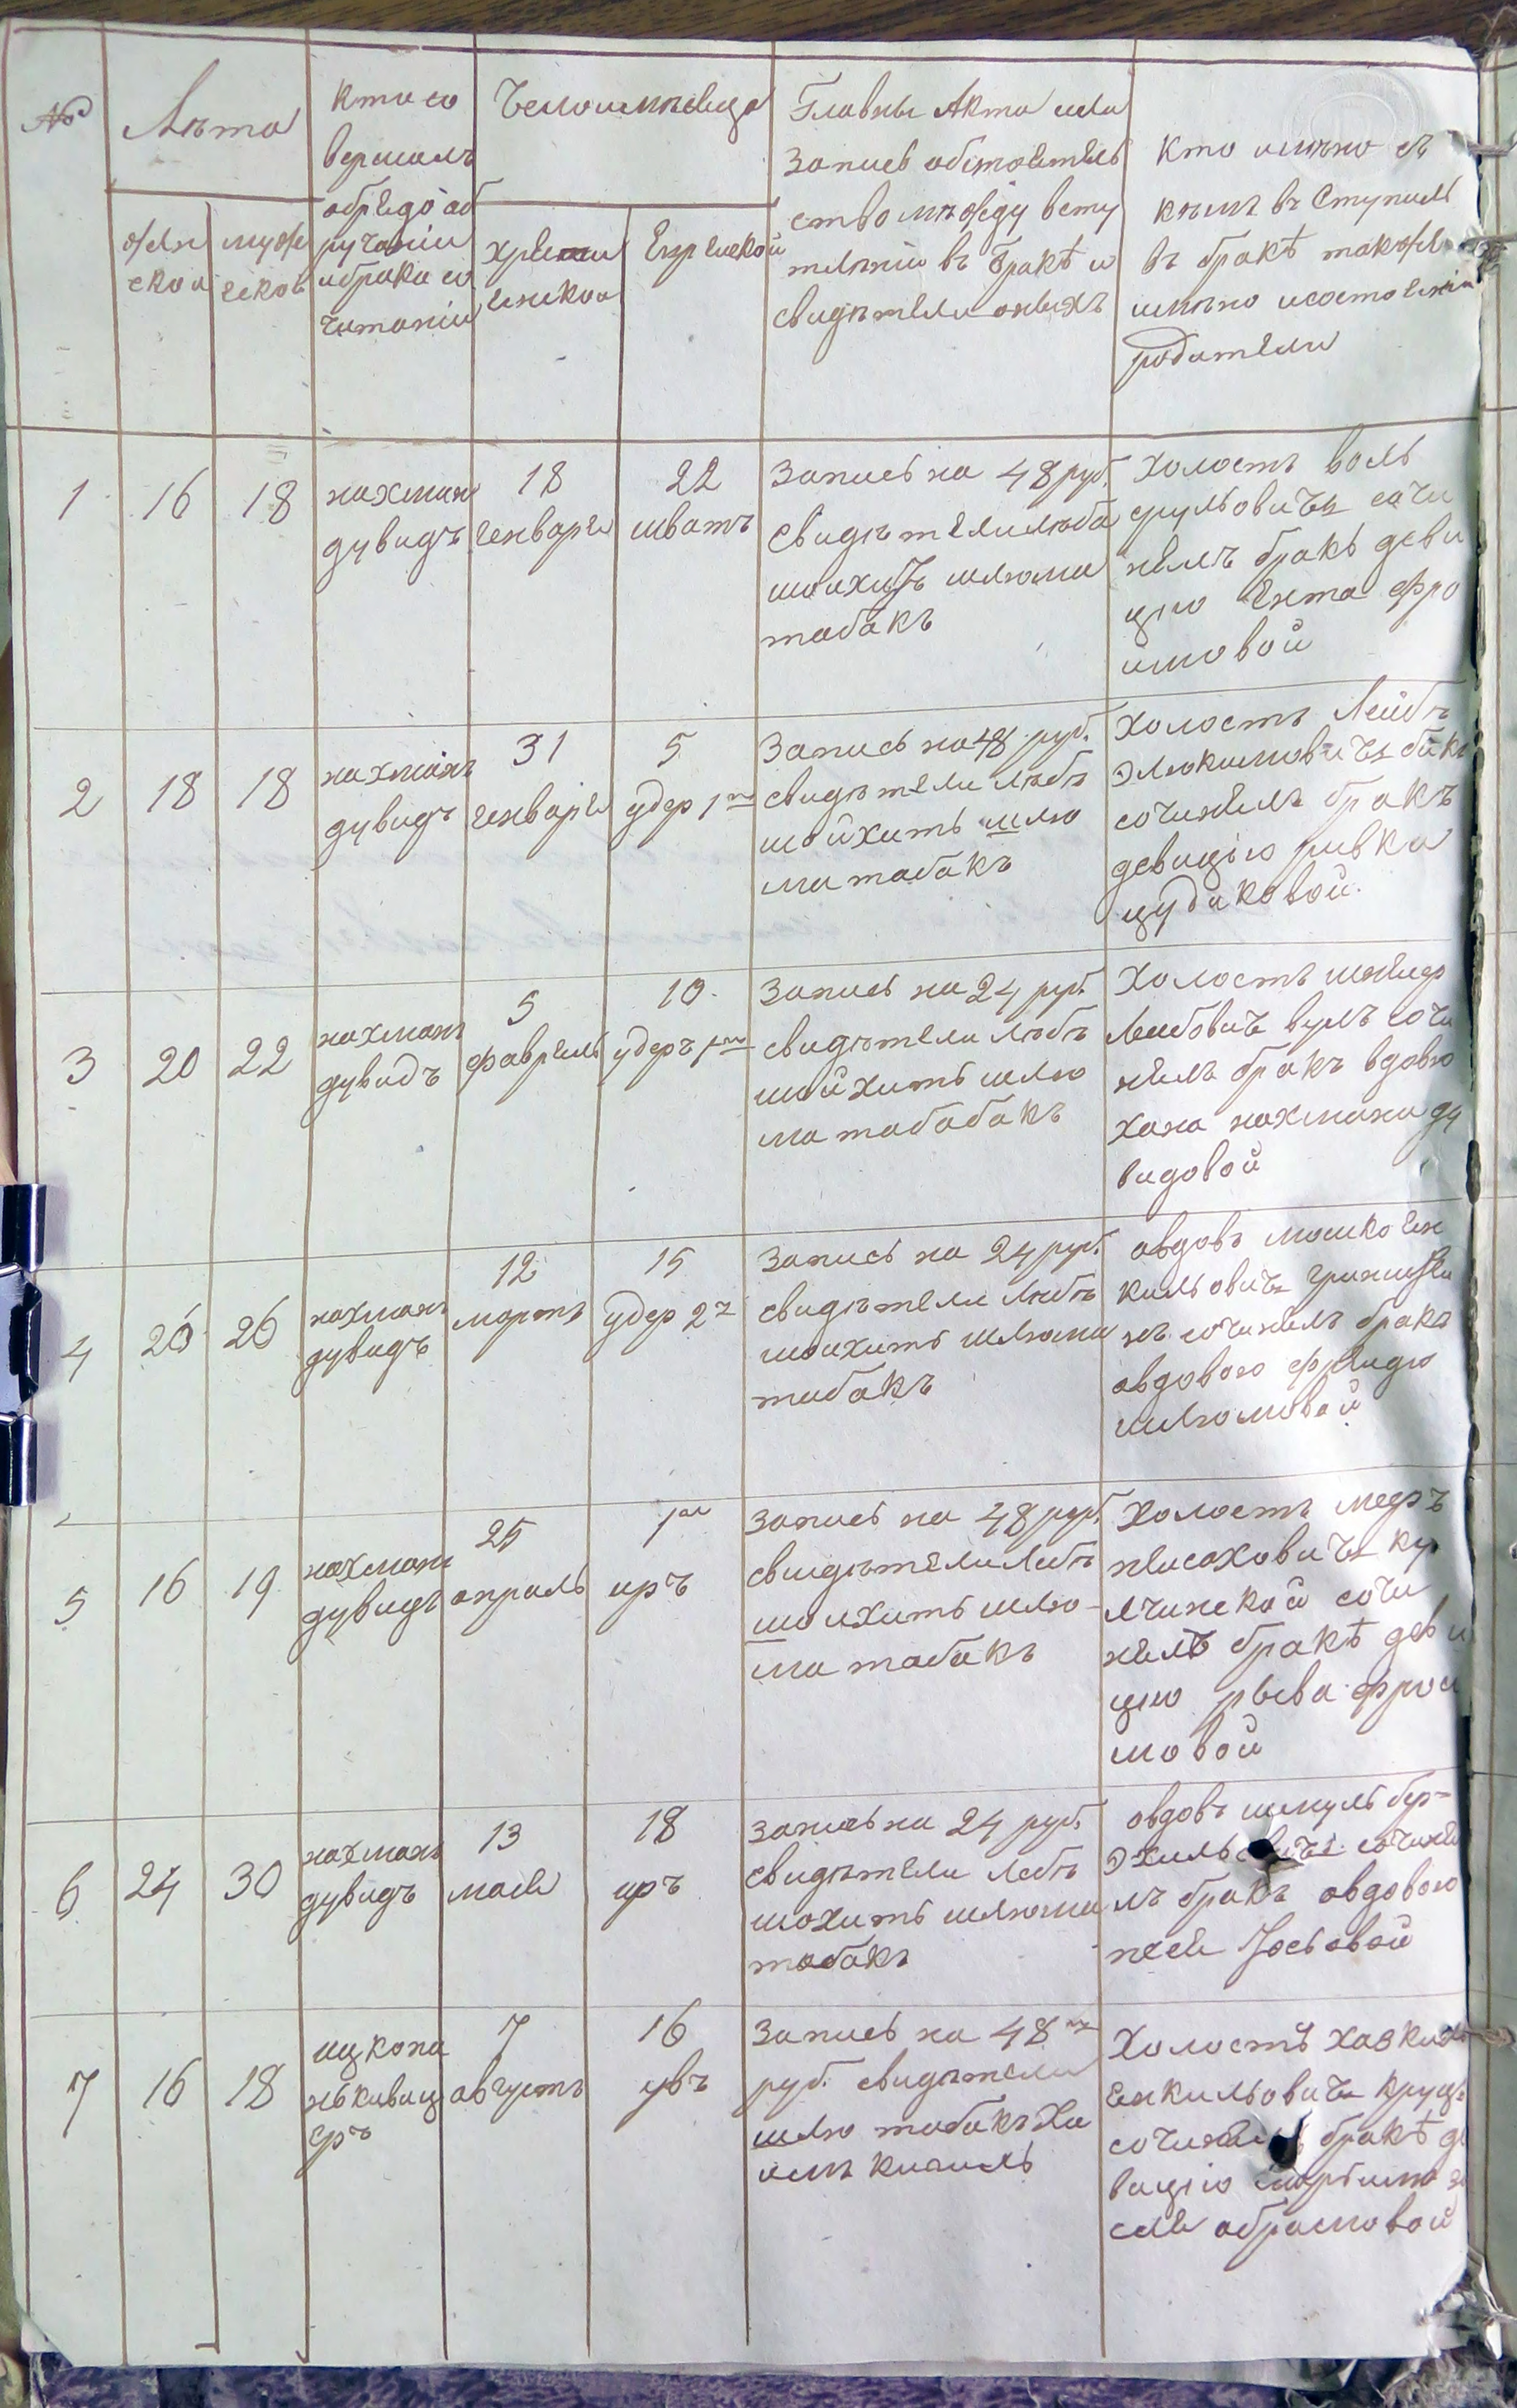 №
Лѣта
жен
ской
муже
ской
кто со
вершалъ
обрядо об
рученіи
и брака со
читаніи
Число и мѣсеца
христи
енской
Еврейской
Главные Акта или
запись обстоятель
ство между всту
пленіи въ бракѣ и
свидѣтели оныхъ
кто имѣно съ
кѣмъ въ Ступилъ
въ бракѣ также
имѣно и состоеніи
родители
1
16
18
нахман
дувидъ
18
генваря
22
шватъ
Запись на 48 руб.
свидѣтели лѣба
шоихитъ шлюма
табакъ
Холостъ воль
срульовичъ сочи
нелъ бракъ деви
цию Ента фро
имовой
2
18
18
нахманъ
дувидъ
31
генваря
5
удер 1го
Запись на 48 руб.
свидѣтели лѣбъ
шойхитъ шлю
ма табакъ
Холостъ Лейбъ
Элюкимовичъ бакъ
сочинелъ бракъ
девицію ривка
цудиковой.
3
20
22
нахманъ
дувидъ
5
февраль
10.
удеръ 1го
Запись на 24 руб.
свидѣтели лѣбъ
шойхитъ шлю
ма табабакъ
Холостъ шнеер
Леибовичъ вулъ сочи
нелъ бракъ вдовю
хана нахмана ду
видовой
4
26
26
нахманъ
дувидъ
12
мартъ
15
удер 2г
Запись на 24 руб.
свидѣтели Лебъ
шоихитъ шлюма
табакъ
овдовъ мошко Ен
кильовичъ гринште
нъ сочинелъ бракъ
овдовою фрейдю
шлюмовой
5
16
19
нахман
дувидъ
25
апраль
1го
иръ
Запись на 48 руб.
свидѣтели Лебъ
шоихитъ шлю-
ма табакъ
Холостъ мееръ
песаховичъ ку
лчинской сочи
нелъ бракѣ деви
цию рыва фрои
мовой
6
24
30
нахманъ
дувидъ
13
маей
18
иръ
запись на 24 руб.
свидѣтели Лебъ
шохитъ шлюма
табакъ
овдовъ шмуль бер-
Эхильовичъ сочине
лъ бракъ овдовою
песе Іосьовой
7
16
18
ицкона
нькивиц
еръ
7
августъ
16
увъ
Запись на 48мъ
руб. свидѣтели
шлю табакъ Ха
имъ кигиль
Холостъ хаскиль
Енкильовичъ круц
сочинелъ бракѣ де
вицію
сле абрамовой